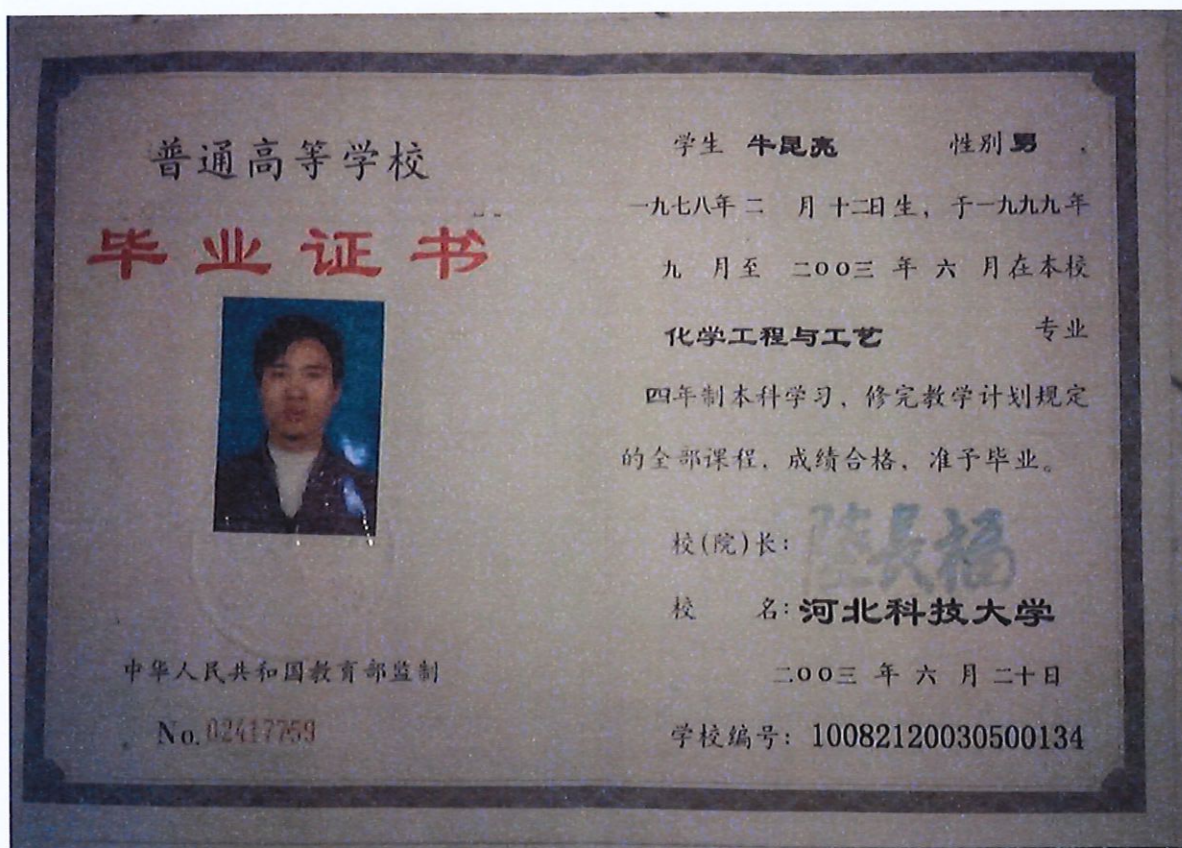 普通高等学校
毕业证书
中华人民共和国教育部监制
No.02417759
学生 牛昆亮 性别 男 ,
一九七八年 二 月 十二日生, 于一九九九年
九 月至 二〇〇三 年 六 月在本校
化学工程与工艺 专业
四年制本科学习, 修完教学计划规定
的全部课程, 成绩合格, 准予毕业。
校(院)长: 陸長福
校 名: 河北科技大学
二〇〇三 年 六 月 二十日
学校编号: 10082120030500134